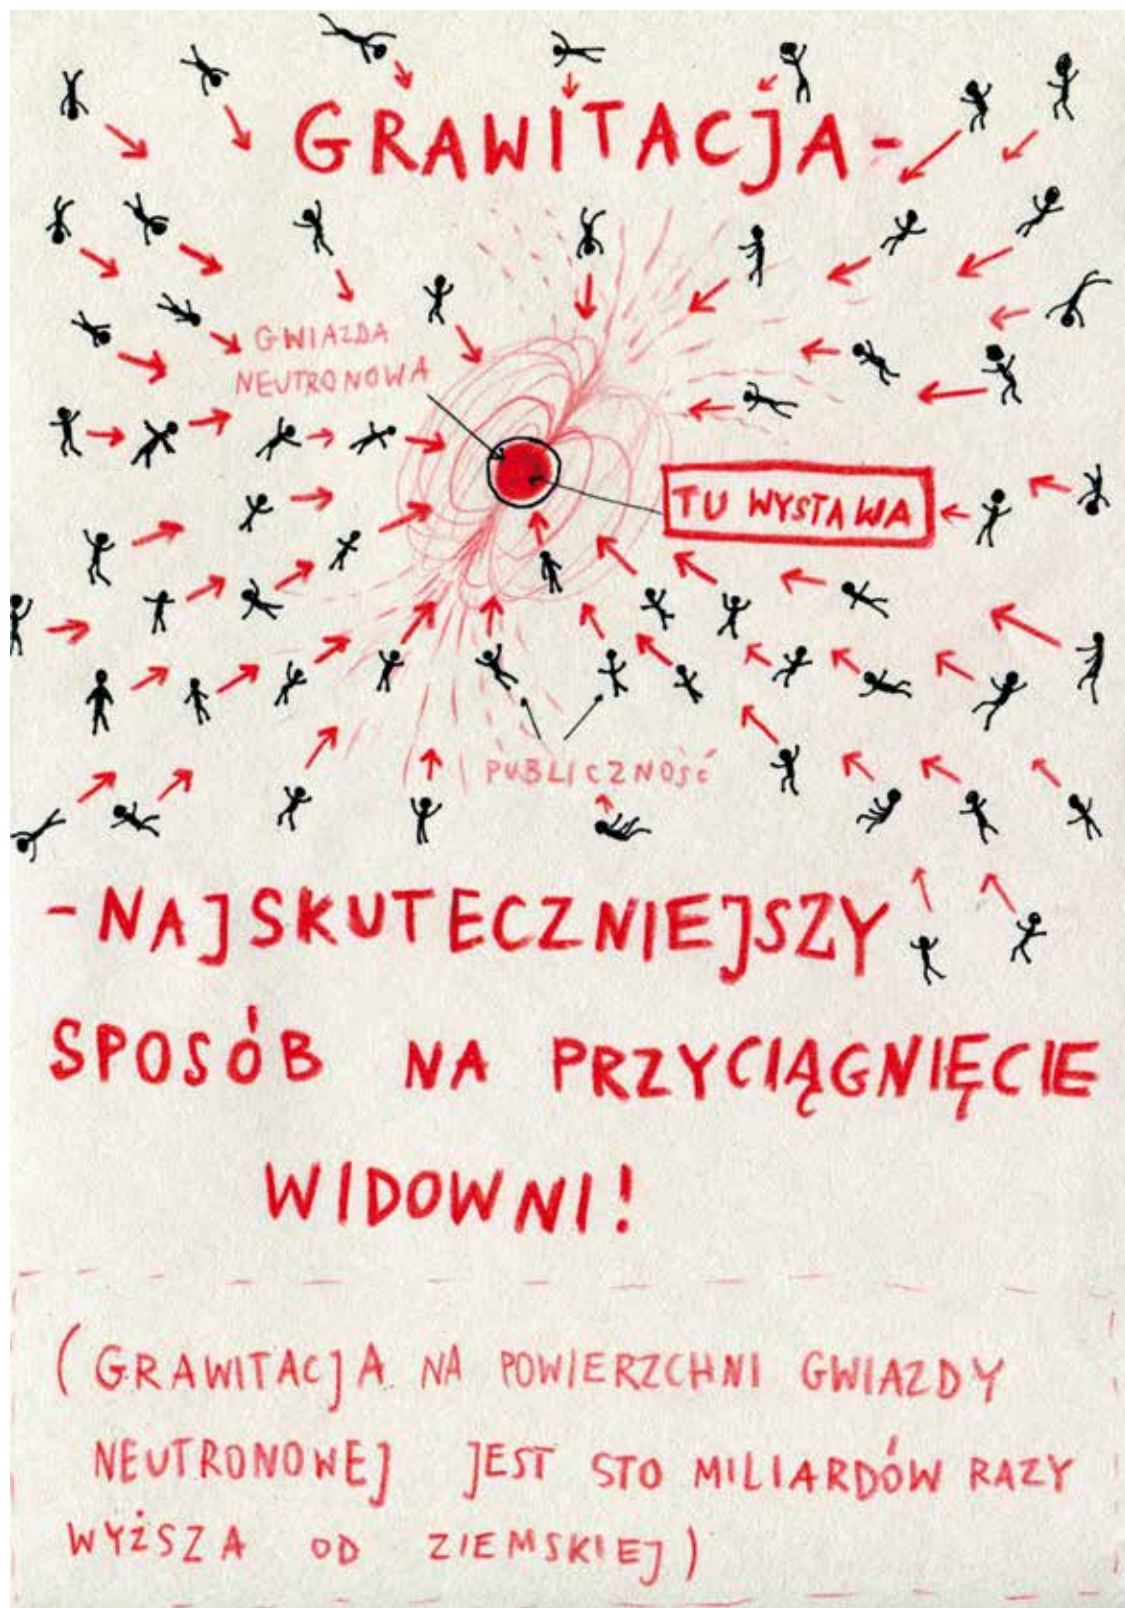 GRAWITACJA-
GWIAZDA
NEUTRONOWA
TU WYSTAWA
PUBLICZNOŚĆ
-NAJSKUTECZNIEJSZY
SPOSÓB NA PRZYCIĄGNIĘCIE
WIDOWNI!
(GRAWITACJA NA POWIERZCHNI GWIAZDY
NEUTRONOWEJ JEST STO MILIARDÓW RAZY
WYŻSZA OD ZIEMSKIEJ)